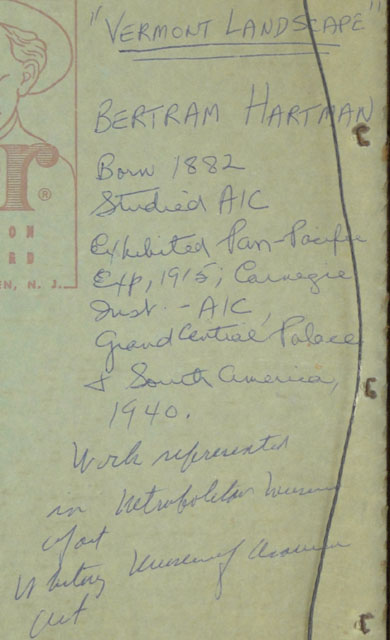 "VERMONT LANDSCAPE"
BERTRAM HARTMAN
Born 1882
Studied AIC
Exhibited Pan-Pacific
Exp, 1915; Carnegie
Inst. - AIC,
Grand Central Palace
& South America,
1940.
Work represented
in Metropolitan Museum
of art
Whitney Museum of American
Art
r®
ON
RD
EN, N. J.